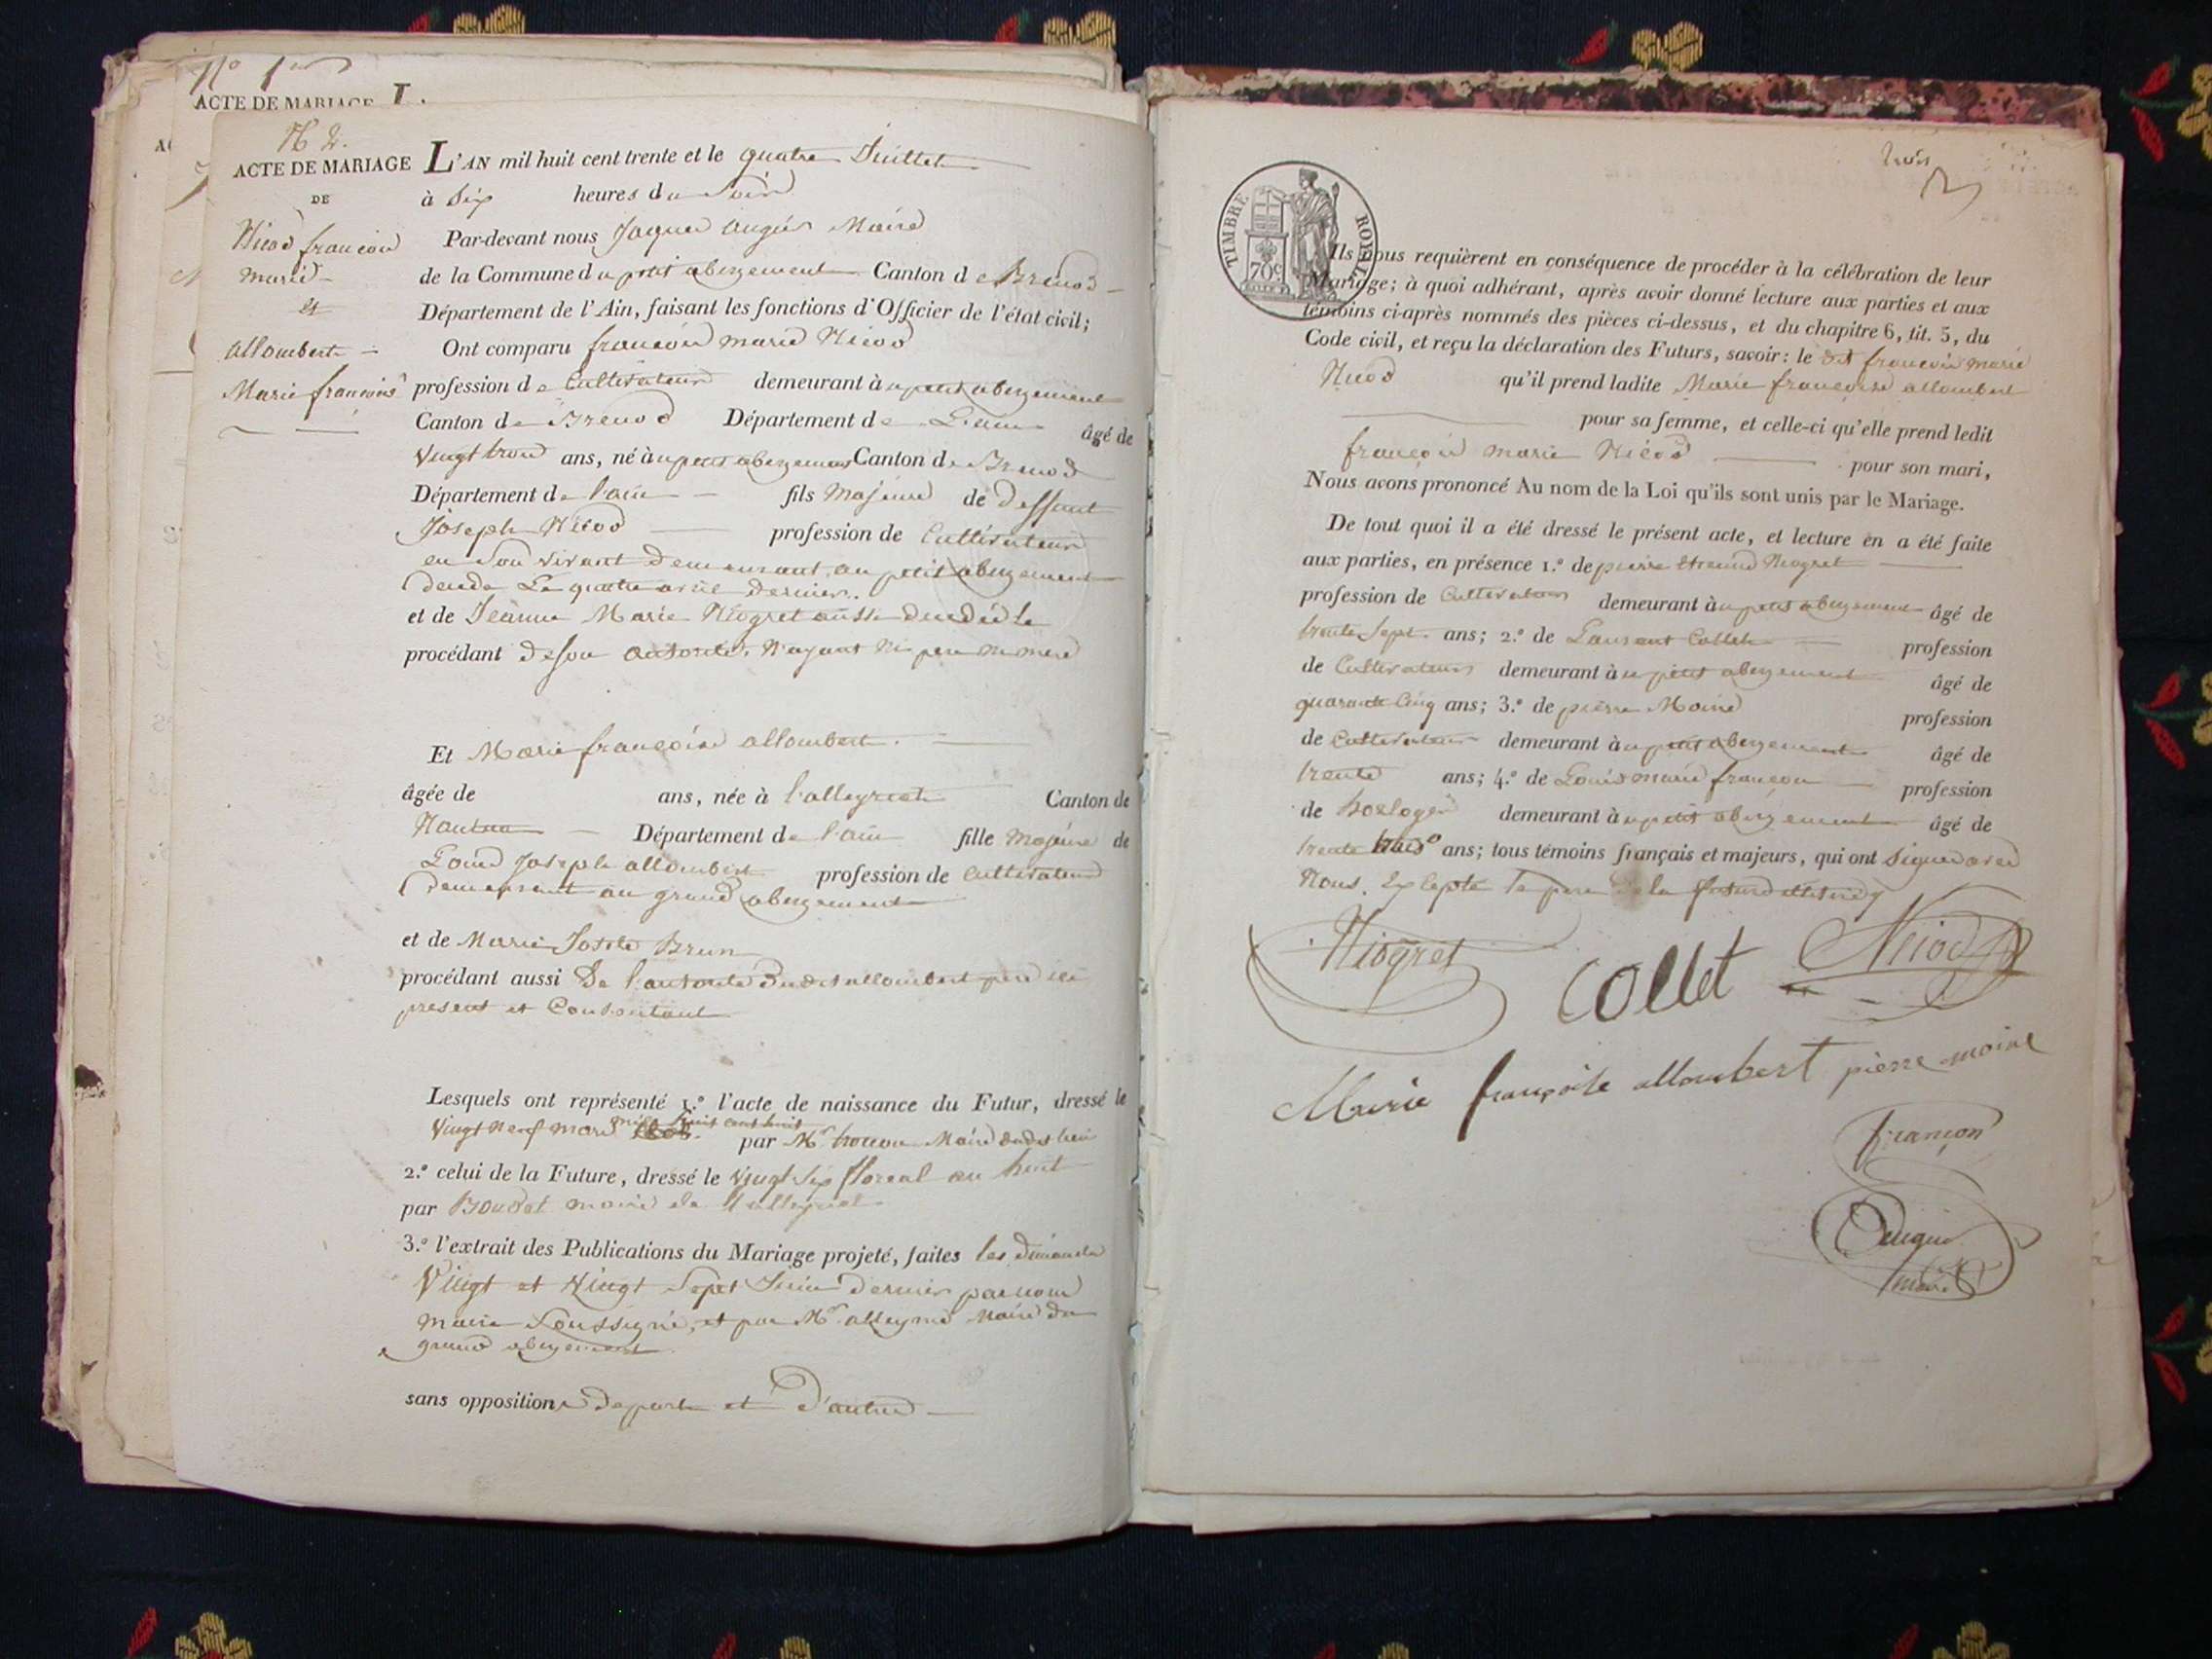 N° 1er
ACTE DE MARIAGE
N° 2.
ACTE DE MARIAGE
DE
Nicod françois
marie
et
allombert
Marie françoise
L'AN mil huit cent trente et le quatre Juillet
à Six heures du Soir
Par-devant nous Jaque augier Maire
de la Commune du petit abergement Canton de Brenod
Département de l'Ain, faisant les fonctions d'Officier de l'état civil;
Ont comparu françois marie Nicod
profession de Cultivateur demeurant au petit abergement
Canton de Brenod Département de L'ain âgé de
Vingt trois ans, né au petit abergement Canton de Brenod
Département de l'ain fils Majeur de deffunt
Joseph Nicod profession de Cultivateur
en Son vivant demeurant au petit abergement
décédé Le quatre avril dernier.
et de Jeanne Marie Niogret aussi décédée
procédant de son autorité, N'ayant Ni pere ni mere
Et Marie françoise allombert.
âgée de ans, née à l'alleyriat Canton de
Nantua Département de l'ain fille Majeure de
Louis Joseph allombert profession de Cultivateur
demeurant au grand abergement
et de Marie Josete Brun
procédant aussi De l'autorité dudit allombert pere ici
present et Consentant
Lesquels ont représenté 1.° l'acte de naissance du Futur, dressé le
Vingt Neuf mars mille huit cent huit par Mr Maire dudit lieu
2.° celui de la Future, dressé le Vingt Six floreal an huit
par Boudet maire de l'alleyriat
3.° l'extrait des Publications du Mariage projeté, faites les dimanche
Vingt et Vingt Sept Juin Dernier par nous
maire Soussigné, et par Mr alleyme Maire du
grand abergement
sans opposition de part et D'autre
trois
3
TIMBRE ROYAL
70c
Ils nous requièrent en conséquence de procéder à la célébration de leur
Mariage; à quoi adhérant, après avoir donné lecture aux parties et aux
témoins ci-après nommés des pièces ci-dessus, et du chapitre 6, tit. 5, du
Code civil, et reçu la déclaration des Futurs, savoir: le dit françois marie
Nicod qu'il prend ladite Marie françoise allombert
pour sa femme, et celle-ci qu'elle prend ledit
françois marie Nicod pour son mari,
Nous avons prononcé Au nom de la Loi qu'ils sont unis par le Mariage.
De tout quoi il a été dressé le présent acte, et lecture en a été faite
aux parties, en présence 1.° de pierre Niogret
profession de Cultivateur demeurant au petit abergement âgé de
trente Sept ans; 2.° de Laurent Collet profession
de Cultivateur demeurant au petit abergement âgé de
quarante Cinq ans; 3.° de pierre Moine profession
de Cultivateur demeurant au petit abergement âgé de
trente ans; 4.° de Louis marie françon profession
de horloger demeurant au petit abergement âgé de
trente trois ans; tous témoins français et majeurs, qui ont Signé avec
Nous. Excepté le pere de la future
Niogret
Collet
Nicod
Marie françoise allombert
pierre moine
françon
augier
maire